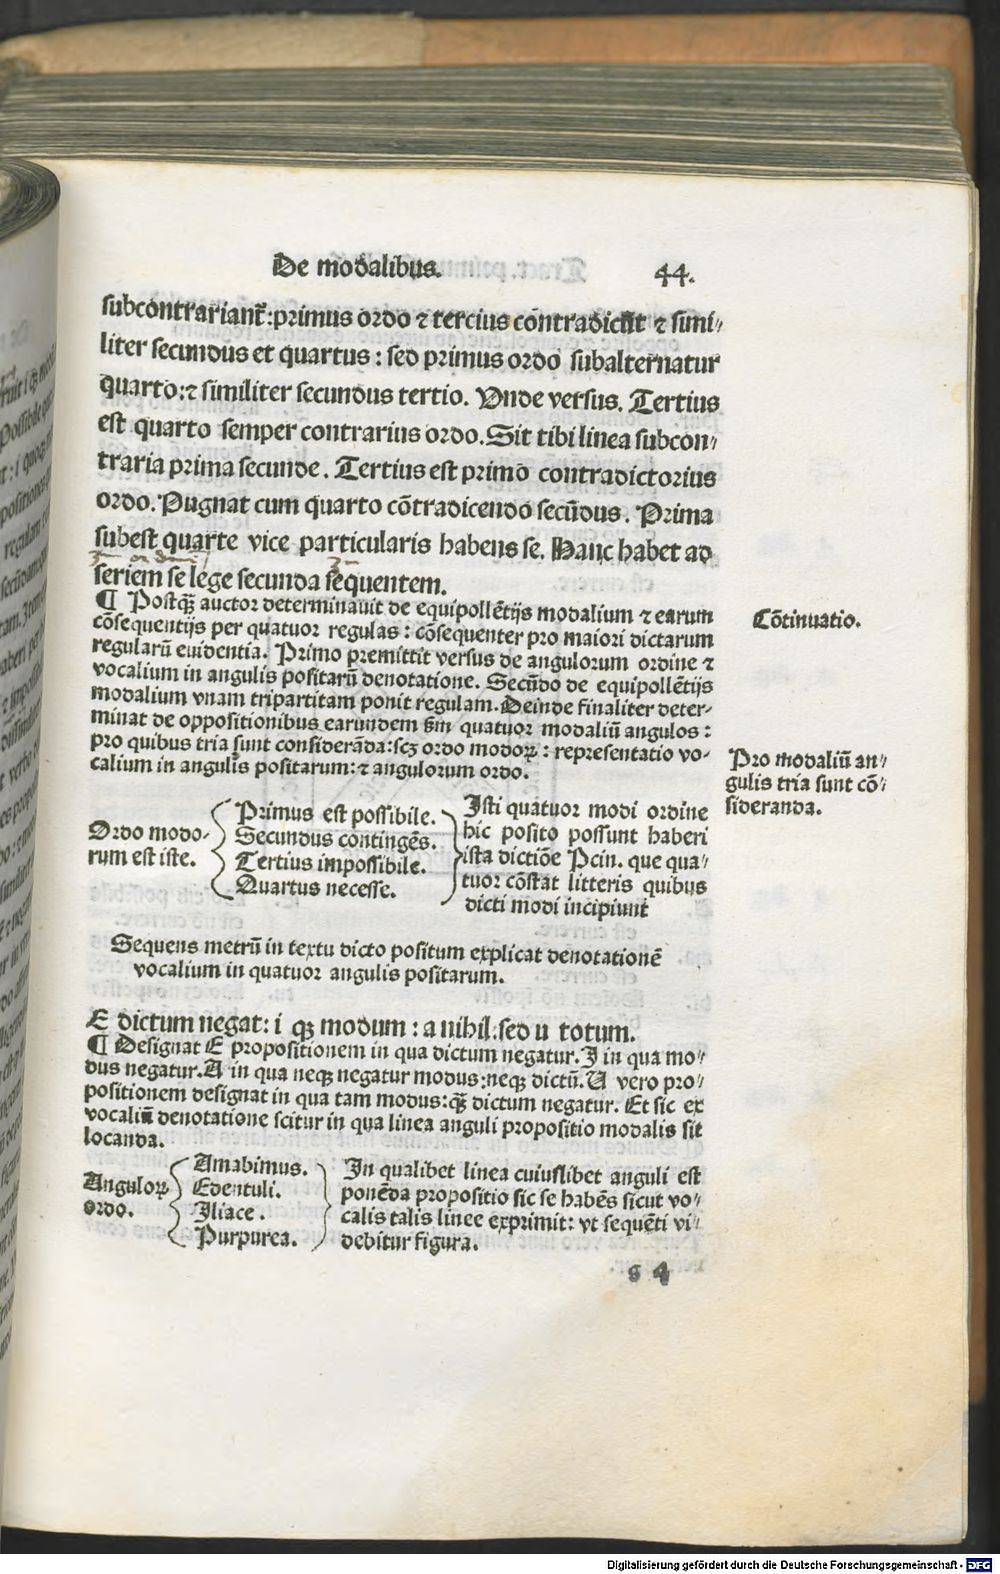 De modalibus. 44.
subcontrariant᷑:primus ordo ⁊ tercius cōtradicūt ⁊ simi⸗
liter secundus et quartus : sed primus ordo subalternatur
quarto:⁊ similiter secundus tertio. Vnde versus. Tertius
est quarto semper contrarius ordo. Sit tibi linea subcon⸗
traria prima secunde. Tertius est primo contradictorius
ordo. Pugnat cum quarto cōtradicendo secūdus. Prima
subest quarte vice particularis habens se. Hanc habet ad
seriem se lege secunda sequentem.
¶ Postꝙ̄ auctor determinauit de equipollētijs modalium ⁊ earum
cōsequentijs per quatuor regulas : cōsequenter pro maiori dictarum
regularū euidentia. Primo premittit versus de angulorum ordine ⁊
vocalium in angulis positarū denotatione. Secūdo de equipollētijs
modalium vnam tripartitam ponit regulam. Deinde finaliter deter-
minat de oppositionibus earundem ẜm quatuor modaliū angulos :
pro quibus tria sunt considerāda:scꝫ ordo modoꝝ : representatio vo-
calium in angulis positarum:⁊ angulorum ordo.
Cōtinuatio.
Pro modaliū an⸗
gulis tria sunt cō⸗
sideranda.
Ordo modo-
rum est iste.
Primus est possibile.
Secundus contingēs.
Tertius impossibile.
Quartus necesse.
Isti quatuor modi ordine
hic posito possunt haberi
ista dictiōe Pcin. que qua⸗
tuor cōstat litteris quibus
dicti modi incipiunt
Sequens metrū in textu dicto positum explicat denotationē
vocalium in quatuor angulis positarum.
E dictum negat: i qꝫ modum : a nihil:sed u totum.
¶ Designat E propositionem in qua dictum negatur. I in qua mo⸗
dus negatur. A in qua neqꝫ negatur modus:neqꝫ dictū. U vero pro⸗
positionem designat in qua tam modus:ꝙ̄ dictum negatur. Et sic ex
vocaliū denotatione scitur in qua linea anguli propositio modalis sit
locanda.
Anguloꝝ
ordo.
Amabimus.
Edentuli.
Iliace.
Purpurea.
In qualibet linea cuiuslibet anguli est
ponēda propositio sic se habēs sicut vo⸗
calis talis linee exprimit: vt sequēti vi⸗
debitur figura.
g 4
Digitalisierung gefördert durch die Deutsche Forschungsgemeinschaft - DFG